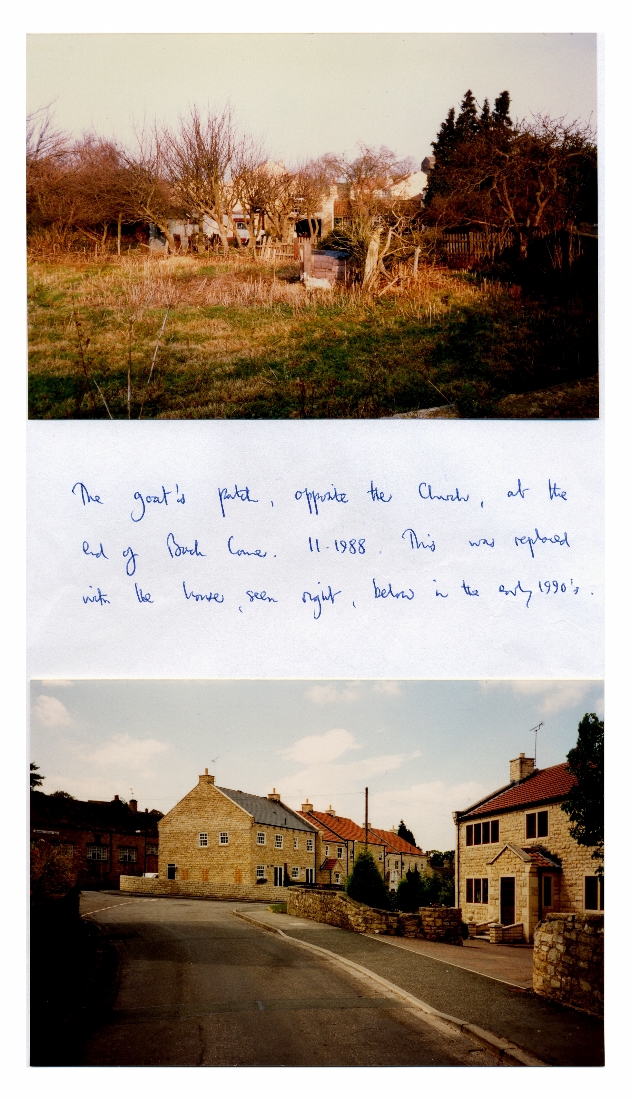 The goat's patch, opposite the Church, at the
end of Back Lane. 11-1988. This was replaced
with the house, seen right, below in the early 1990's.